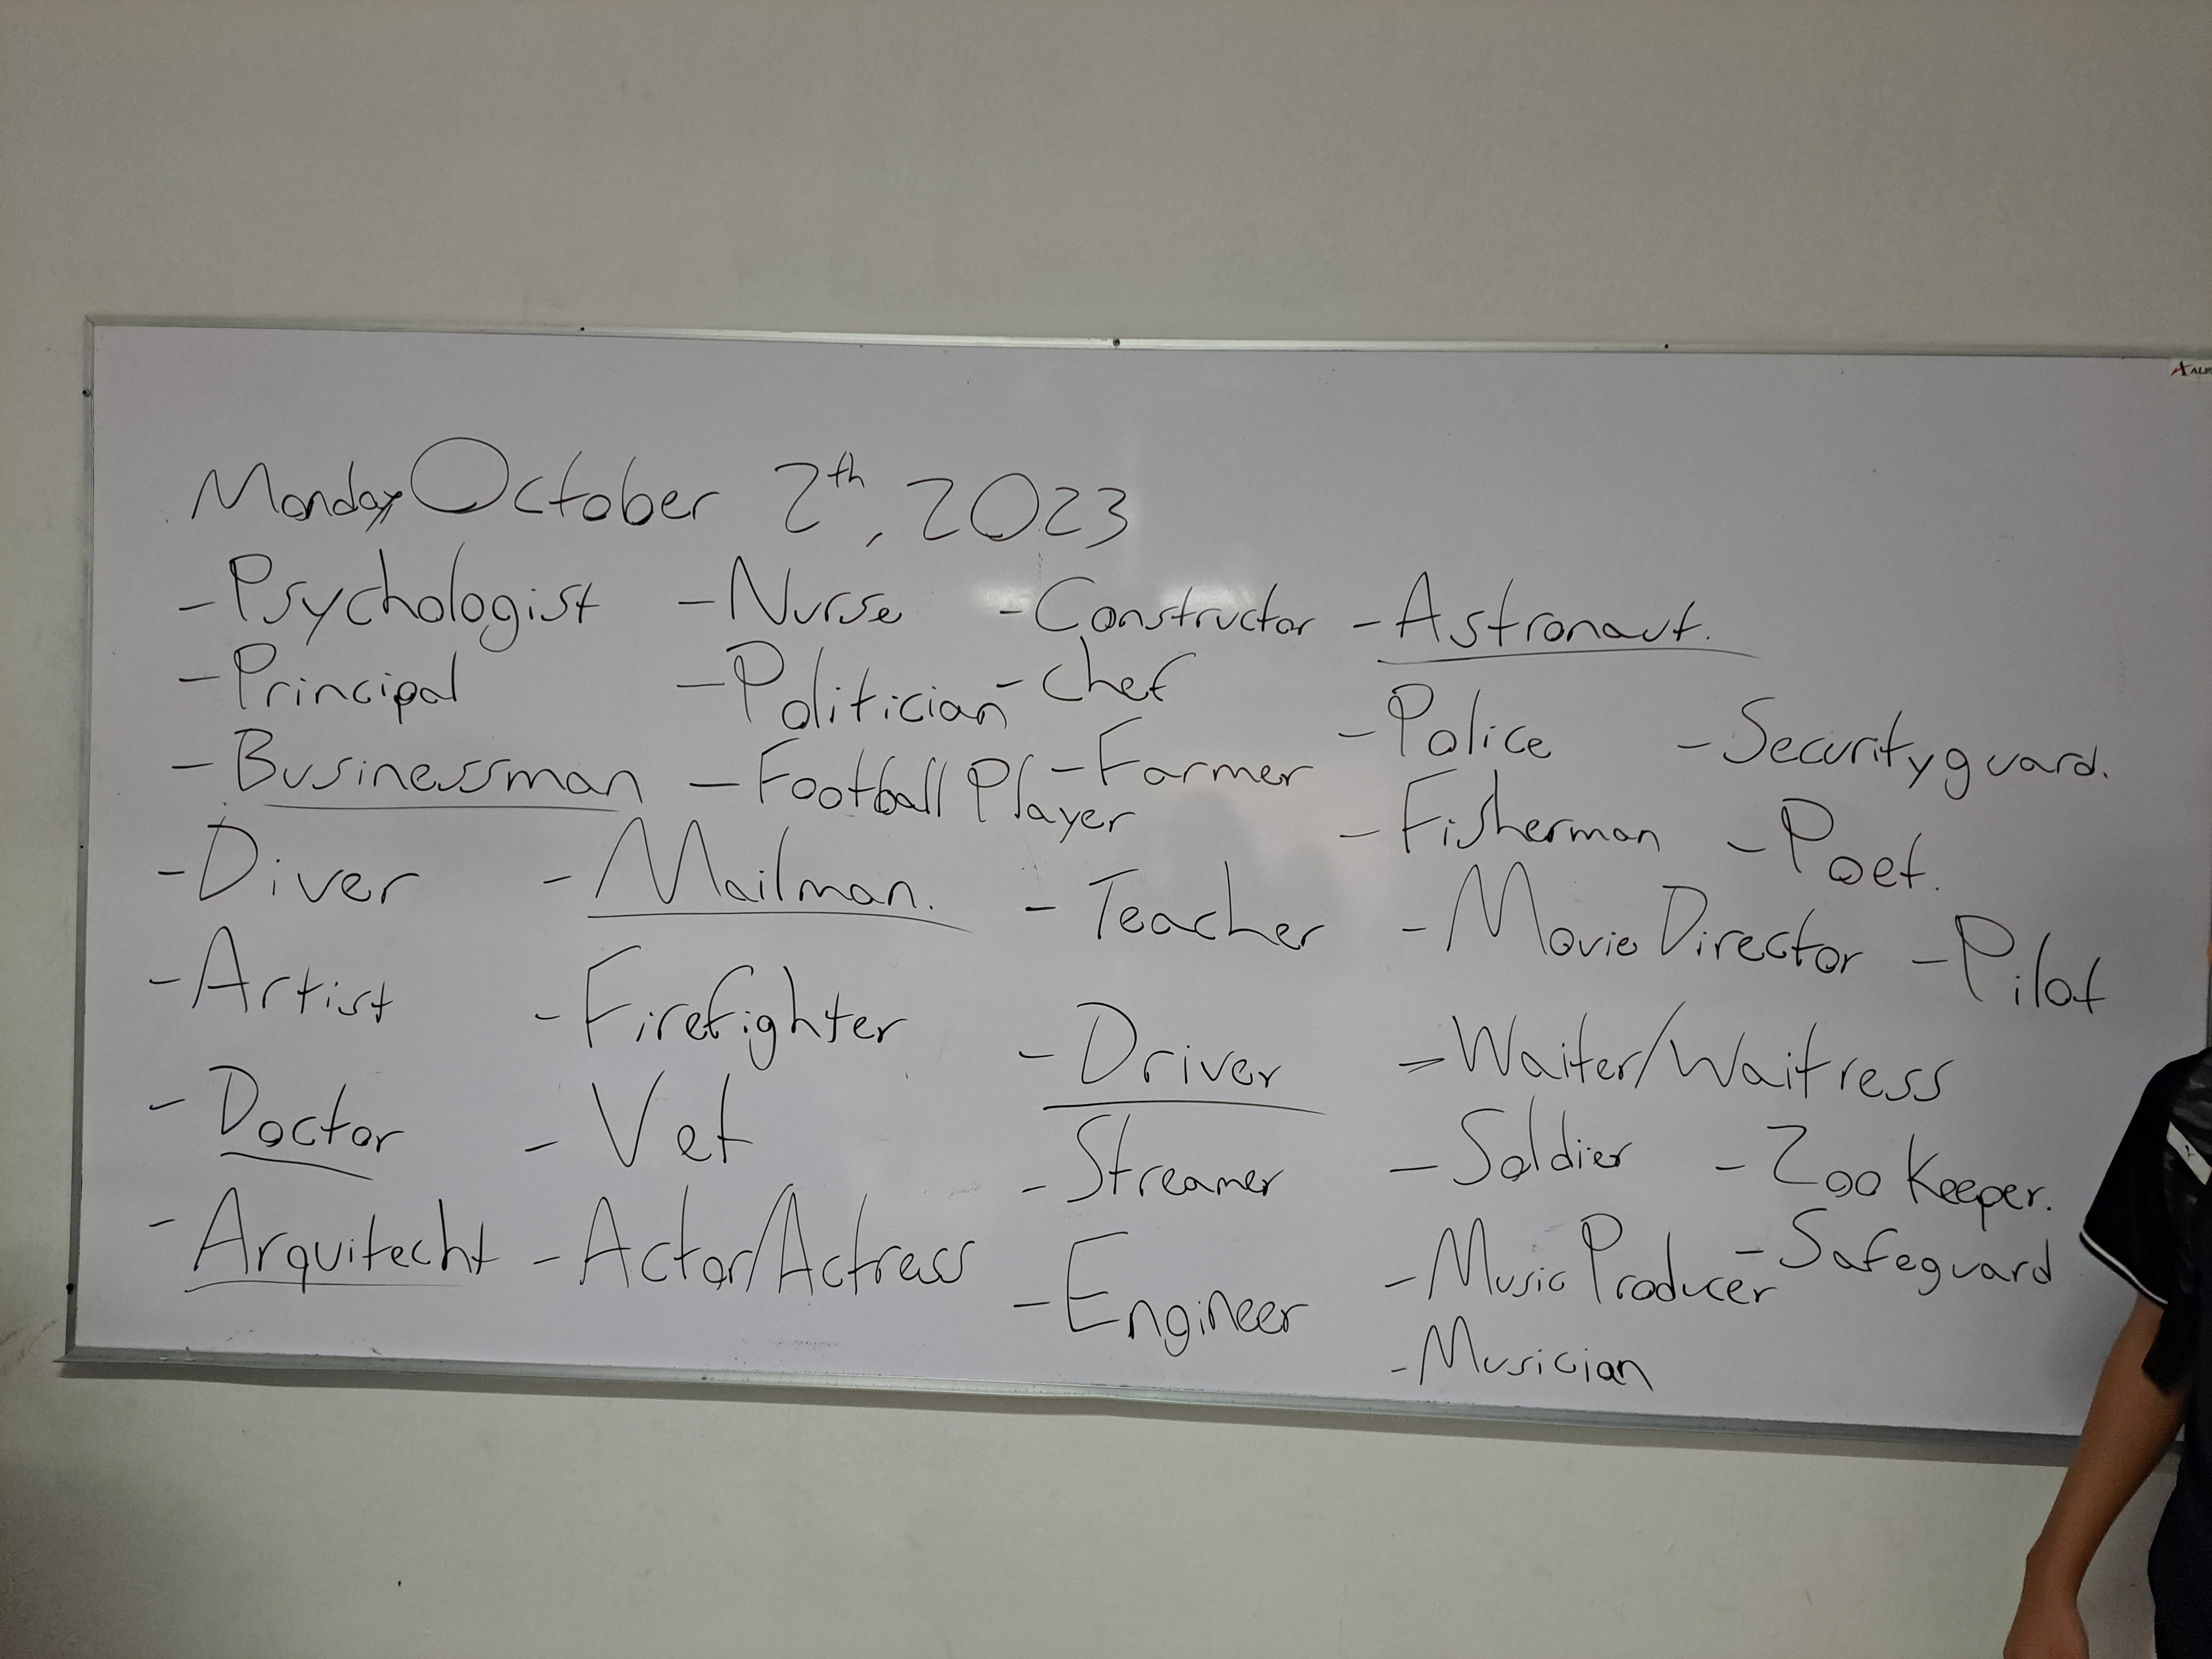 Monday October 2th, 2023
- Psychologist - Nurse - Constructor - Astronaut.
- Principal - Politician - Chef
- Police - Security guard.
- Businessman - Football Player - Farmer
- Fisherman - Poet.
- Diver - Mailman. - Teacher - Movie Director - Pilot
- Artist - Firefighter - Driver - Waiter/Waitress
- Doctor - Vet - Streamer - Soldier - Zoo Keeper.
- Arquitecht - Actor/Actress - Engineer - Music Producer - Safeguard
- Musician